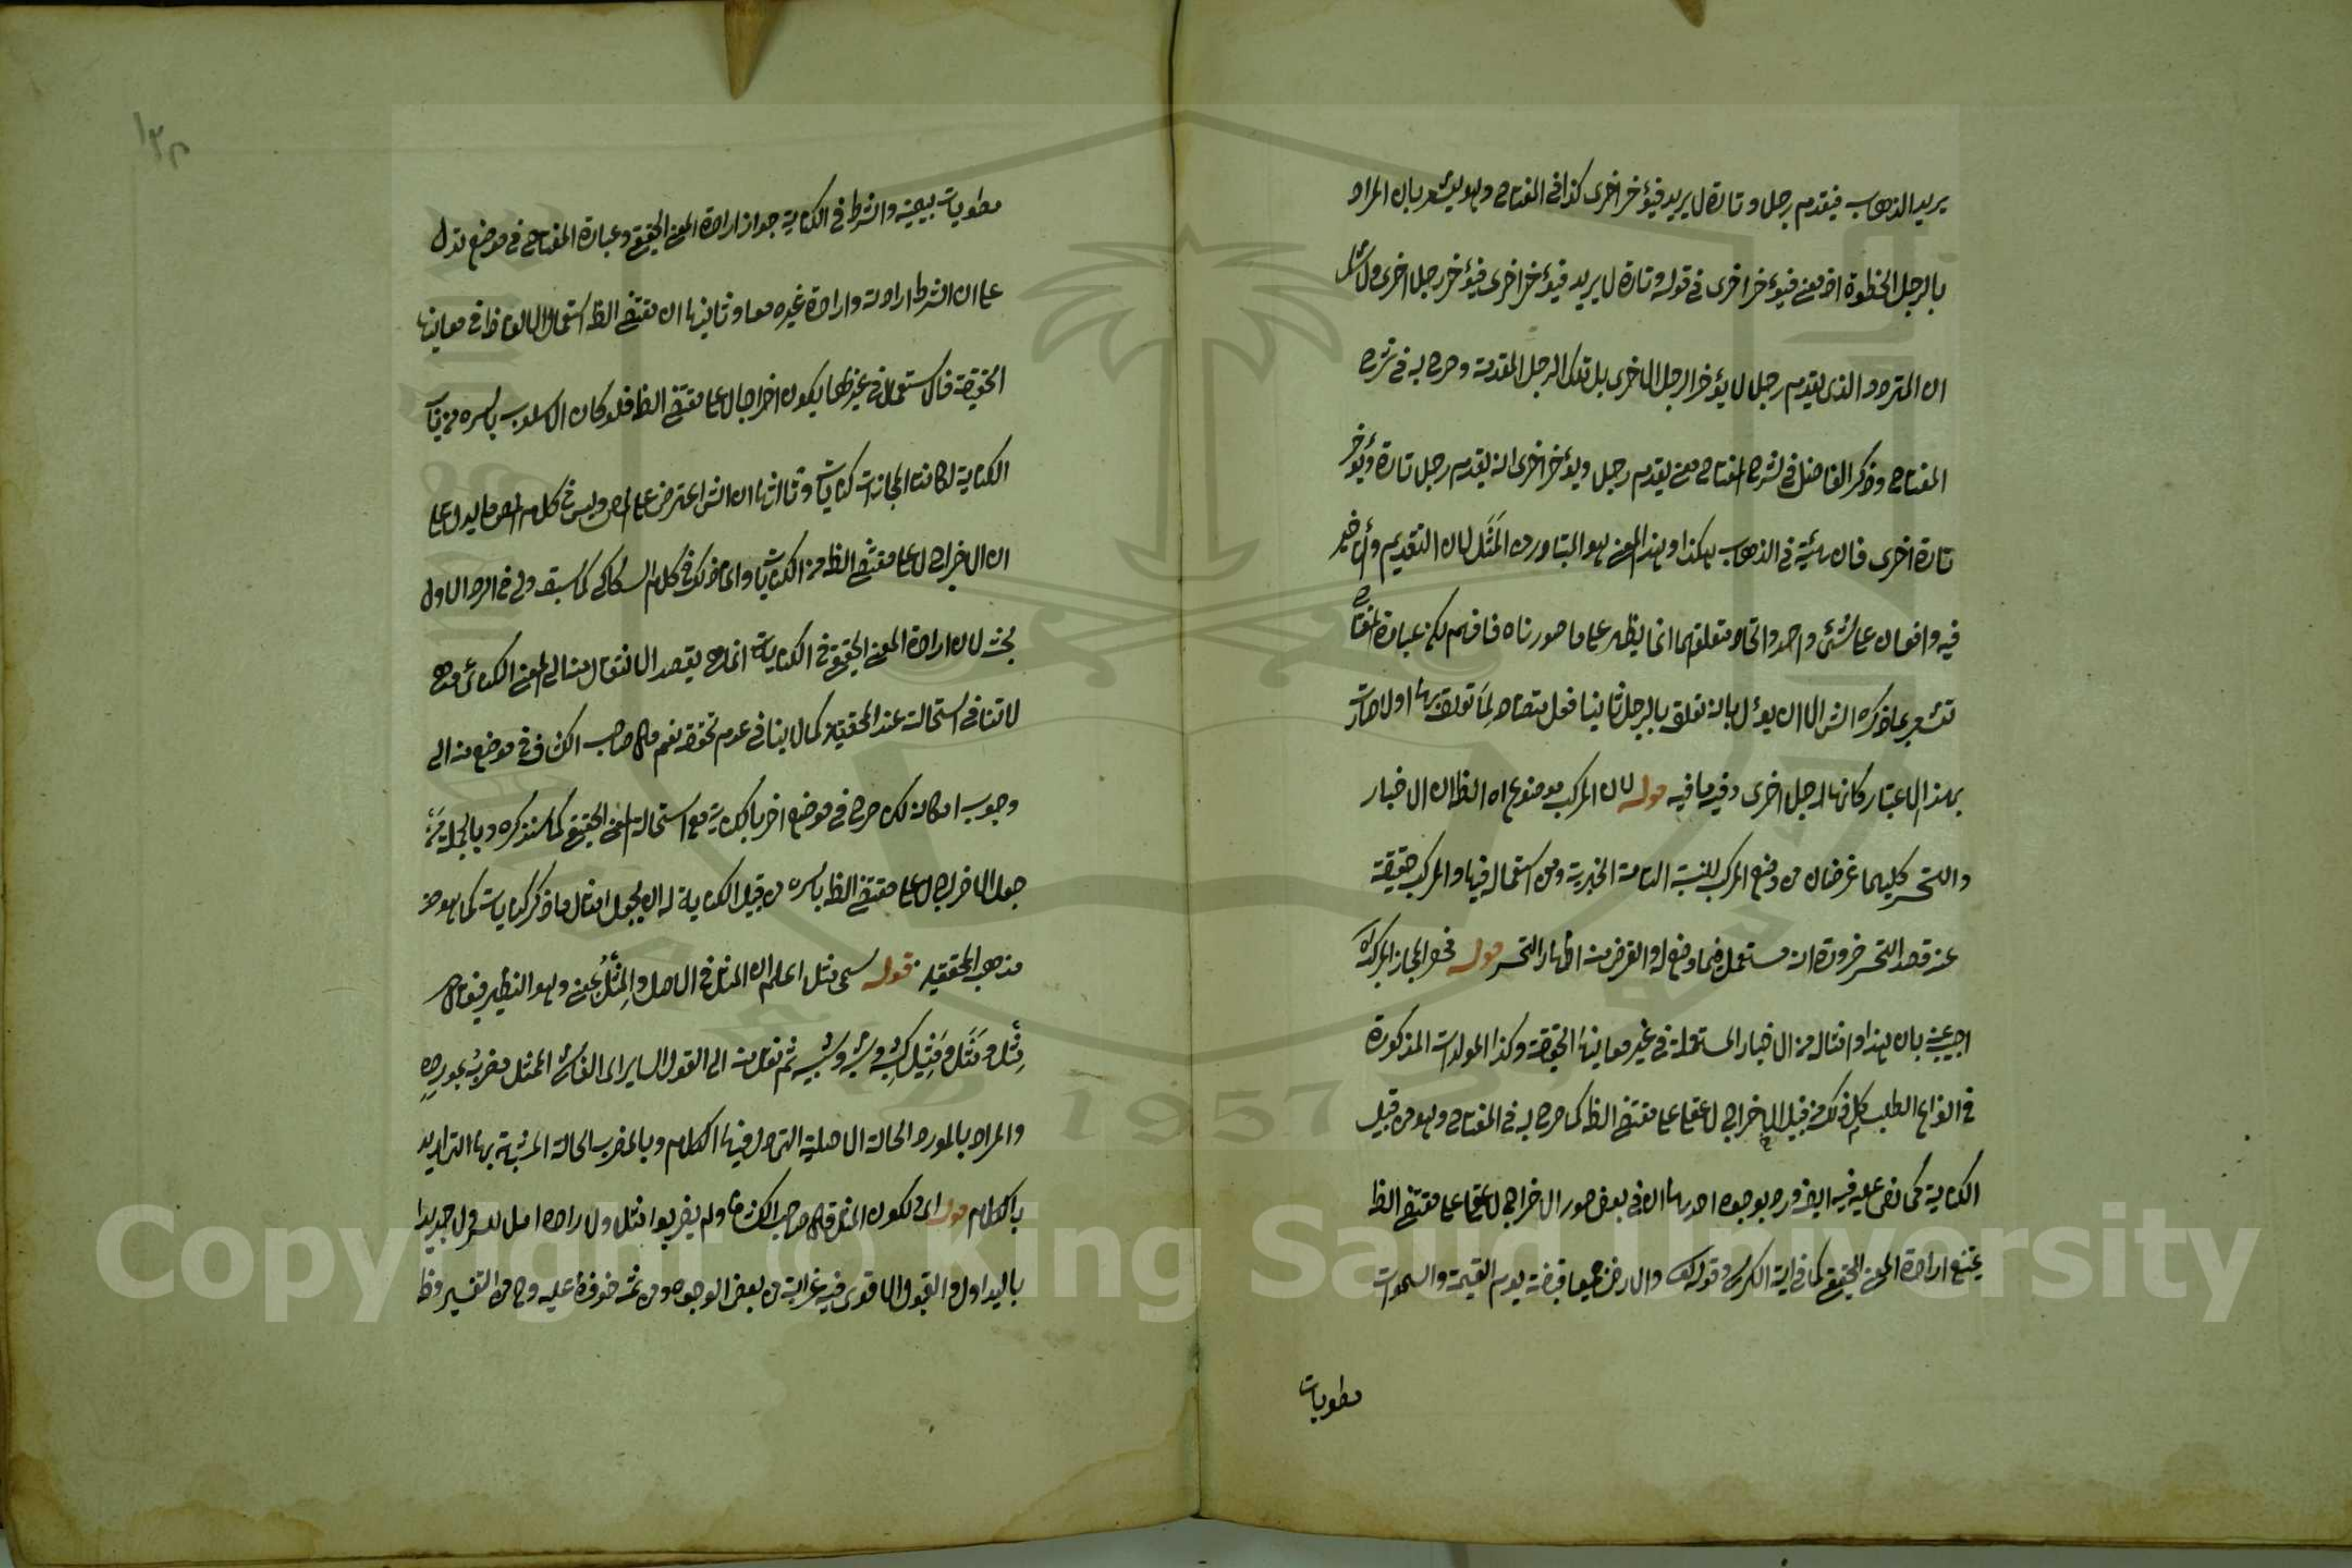 يريد الذهاب فيقدم رجلا وتارة لا يريد فيؤخر اخرى كذا في المفتاح وهو يشعر بان المراد
بالرجل الخطوة اذ معنى فيؤخر اخرى في قوله وتارة لا يريد فيؤخر اخرى فيؤخر رجلا اخرى ولا شك
ان المتردد الذي يقدم رجلا لا يؤخر الرجل الاخرى بل تلك الرجل المقدمة وصرح به في شرح
المفتاح وذكر الفاضل في شرح المفتاح معنى يقدم رجلا ويؤخر اخرى انه يقدم رجلا تارة ويؤخر
تارة اخرى فان هيئة في الذهاب هكذا وهذا المعنى هو المتبادر من المَثَل لان التقديم والتأخير
فيه واقعان على شئ واحد واتحاد متعلقهما انما يظهر على ما صورناه فافهم لكن عبارة المفتاح
تشعر بما ذكره الش الا ان يؤل بانه تعلق بالرجل ثانيا فعل متضاد لِمَا تعلق بها اولا صارت
بهذا الاعتبار كانها رجل اخرى وفيه ما فيه قوله لان المركب موضوع اه الظ ان الاخبار
والتحسر كليهما غرضان من وضع المركب للنسبة التامة الخبرية ومن استعماله فيها والمركب حقيقة
عند قصد التحسر ضرورة انه مستعمل فيما وضع له والغرض منه اظهار التحسر قوله فحصر المجاز المركب اه
اجيب عنه بان هذا وامثاله من الاخبار المستعملة في غير معانيها الحقيقة وكذا المولدات المذكورة
في انواع الطلب كل ذلك من قبيل الاخراج لا على مقتضى الظ كما صرح به في المفتاح وهو من قبيل
الكناية كما نص عليه فيه ايضا ورد بوجوه احدها ان في بعض صور الاخراج لا على مقتضى الظ
يمتنع ارادة المعنى الحقيقي كما في اية الكرسي وقوله تع والارض جميعا قبضته يوم القيمة والسموات
مطويات
١٣٢
مطويات بيمينه والشرط في الكناية جواز ارادة المعنى الحقيقي وعبارة المفتاح في موضع تدل
على ان الشرط ارادته وارادة غيره معا وثانيها ان مقتضى الظ استعمال الالفاظ في معانيها
الحقيقة فالاستعمال في غيرها يكون اخراجا لا على مقتضى الظ فلو كان الاسلوب باسره من باب
الكناية لكانت المجازات كنايات وثالثها ان الش اعترض على المص وليس في كلام المص ما يدل على
ان الاخراج لا على مقتضى الظ من الكنايات وانما ذلك في كلام السكاكي كما سبق وفي الرد الاول
بحث لان ارادة المعنى الحقيقي في الكناية انما هي بقصد الانتقال منه الى المعنى الكنائي
لا تنافي استحالته عند المحققين كما لا ينافي عدم تحققه نعم مال صاحب الكشاف في موضع منه الى
وجوب امكانه لكن صرح في موضع اخر بالكناية مع استحالة المعنى الحقيقي كما سنذكره وبالجملة
جعل الاخراج لا على مقتضى الظ باسره من قبيل الكناية له ان يجعل امثال ما ذكر كنايات كما هو
مذهب المحققين قوله سمى مثلا اعلم ان المثل في الاصل والمِثْل بمعنى وهو النظير فيقال
مِثْل ومَثَل ومَثِيل كشِبْه وشَبَه وشبيه ثم نقل منه الى القول السائر اى الفاشي الممثل مضربه بمورده
والمراد بالمورد الحالة الاصلية التي ورد فيها الكلام وبالمضرب الحالة المشبهة بها التي اريد
بالكلام قوله اى لكون المثل قال صاحب الكشاف ولم يضربوا مثلا ولا راوه اهلا للتسيير ولا جديرا
بالتداول والقبول الا قولا فيه غرابة من بعض الوجوه ومن ثمه حوفظ عليه وحمى من التغيير وظ